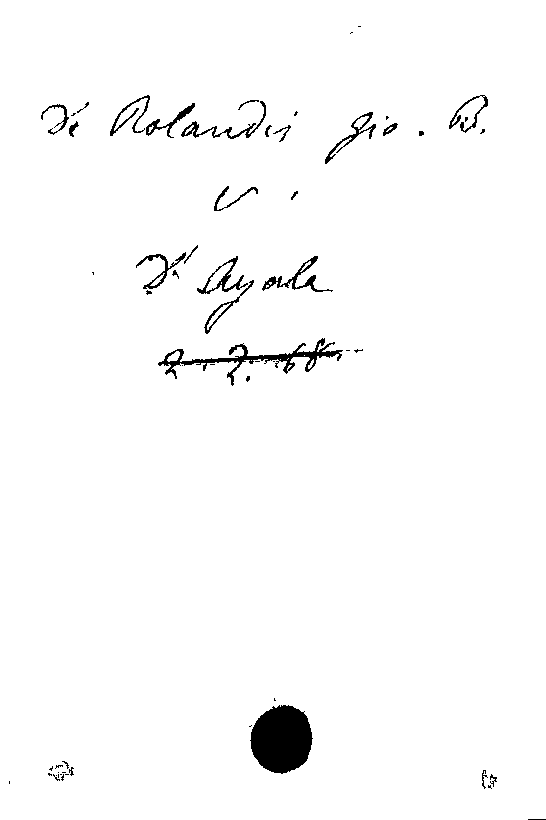 De Rolandis Gio. B.
v.
D'Ayala
2. 2. 68.